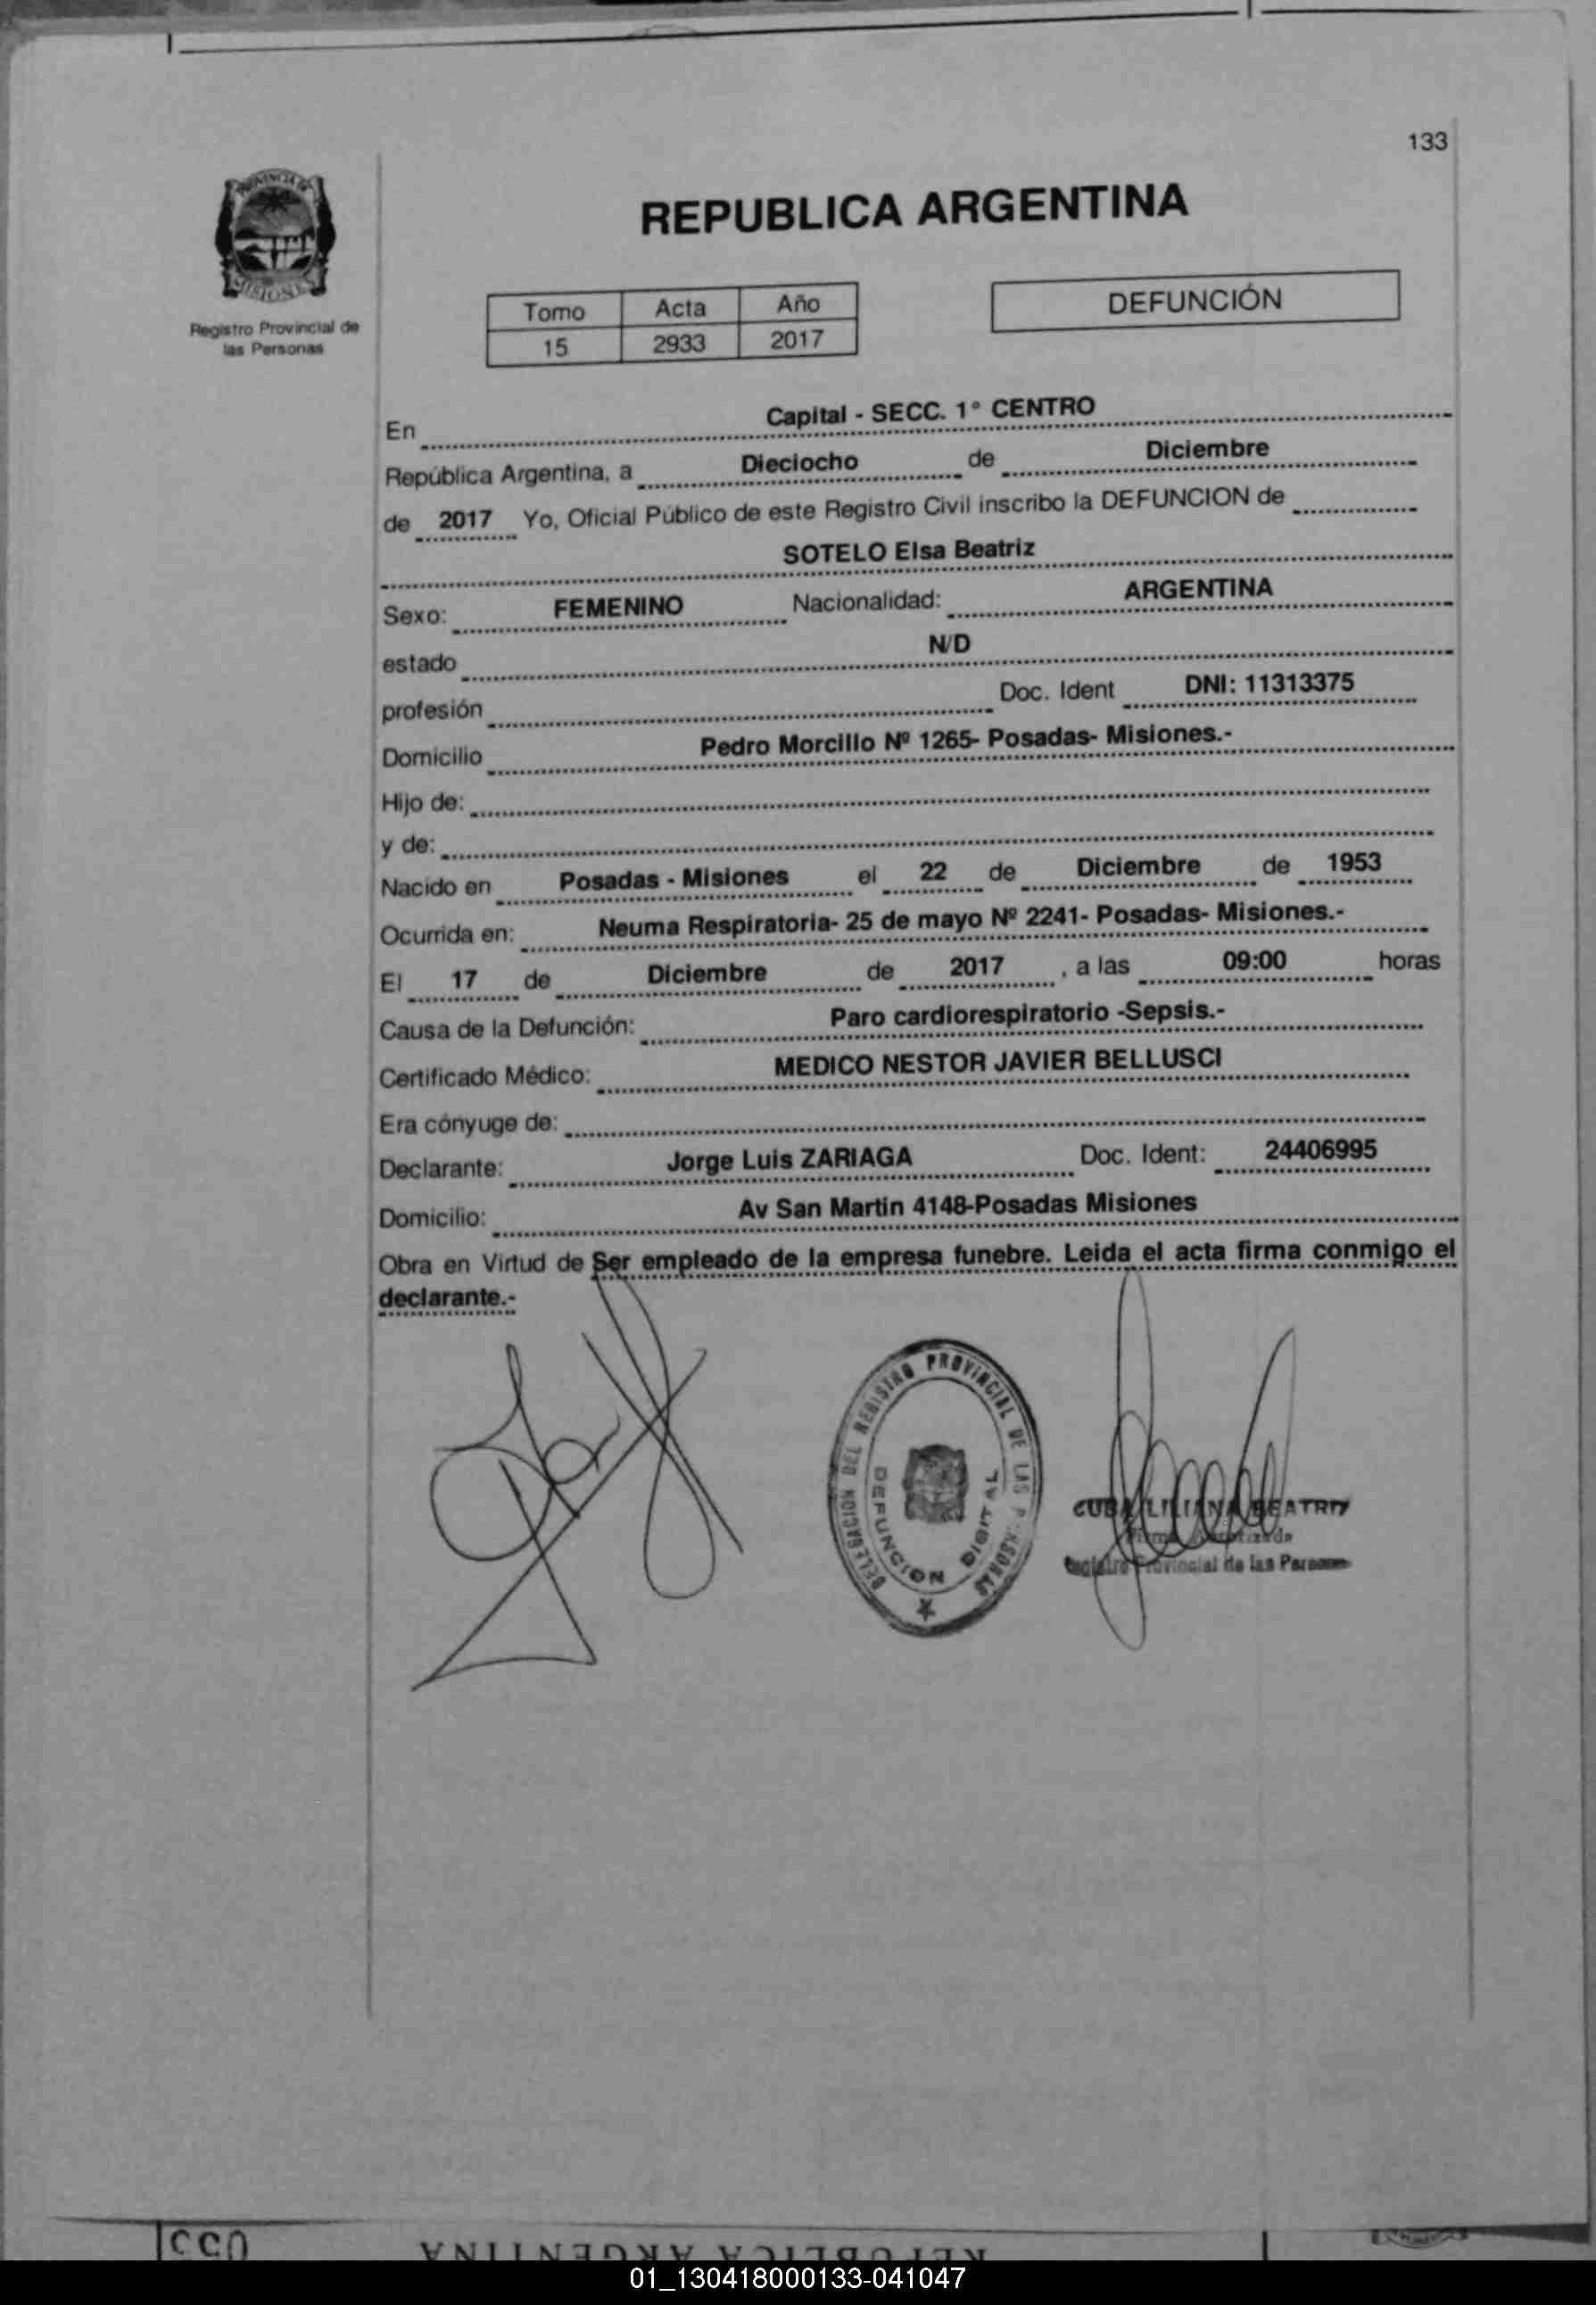 133
PROVINCIA DE
MISIONES
Registro Provincial de
las Personas
REPUBLICA ARGENTINA
Tomo Acta Año
15 2933 2017
DEFUNCIÓN
En Capital - SECC. 1° CENTRO
República Argentina, a Dieciocho de Diciembre
de 2017 Yo, Oficial Público de este Registro Civil inscribo la DEFUNCION de
SOTELO Elsa Beatriz
Sexo: FEMENINO Nacionalidad: ARGENTINA
estado N/D
profesión Doc. Ident DNI: 11313375
Domicilio Pedro Morcillo Nº 1265- Posadas- Misiones.-
Hijo de:
y de:
Nacido en Posadas - Misiones el 22 de Diciembre de 1953
Ocurrida en: Neuma Respiratoria- 25 de mayo Nº 2241- Posadas- Misiones.-
El 17 de Diciembre de 2017 , a las 09:00 horas
Causa de la Defunción: Paro cardiorespiratorio -Sepsis.-
Certificado Médico: MEDICO NESTOR JAVIER BELLUSCI
Era cónyuge de:
Declarante: Jorge Luis ZARIAGA Doc. Ident: 24406995
Domicilio: Av San Martin 4148-Posadas Misiones
Obra en Virtud de Ser empleado de la empresa funebre. Leida el acta firma conmigo el
declarante.-
DELEGACION DEL REGISTRO PROVINCIAL DE LAS PERSONAS
DEFUNCION DIGITAL
CUBA LILIANA BEATRIZ
Registro Provincial de las Personas
REPUBLICA ARGENTINA
01_130418000133-041047